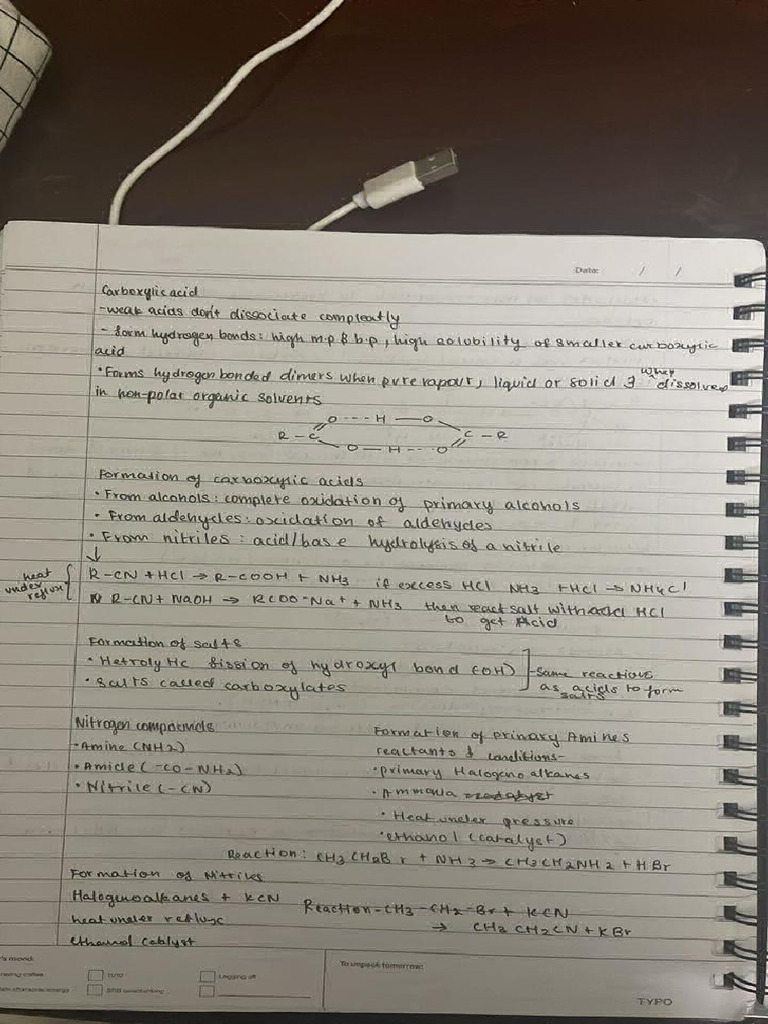 Date: / /
Carboxylic acid
-weak acids don't dissociate compleatly
- form hydrogen bonds: high m.p & b.p, high solubility of smaller carboxylic
acid
• Forms hydrogen bonded dimers when pure vapour, liquid or solid & when dissolved
in non-polar organic solvents
O --- H — O
R - C C - R
O — H --- O
Formation of carboxylic acids
• From alcohols: complete oxidation of primary alcohols
• From aldehydes: oxidation of aldehydes
• From nitriles: acid/base hydrolysis of a nitrile
↓
heat under reflux
R-CN + HCl → R-COOH + NH3 if excess HCl NH3 + HCl → NH4Cl
R-CN + NaOH → RCOO-Na+ + NH3 then react salt with acid HCl
to get Acid
Formation of salts
• Hetrolytic fission of hydroxyl bond (OH)
• Salts called carboxylates
-same reactions
as acids to form
salts
Nitrogen compounds
-Amine (NH2)
• Amide (-CO-NH2)
• Nitrile (-CN)
Formation of primary Amines
reactants & conditions-
• primary Halogeno alkanes
• Ammonia
• Heat under pressure
• ethanol (catalyst)
Reaction: CH3CH2Br + NH3 → CH3CH2NH2 + HBr
Formation of Nitriles
Halogenoalkanes + KCN
heat under reflux
ethanol catalyst
Reaction-CH3-CH2-Br + KCN
→ CH3CH2CN + KBr
's mood:
11/10
Logging off
To unpack tomorrow:
TYPO